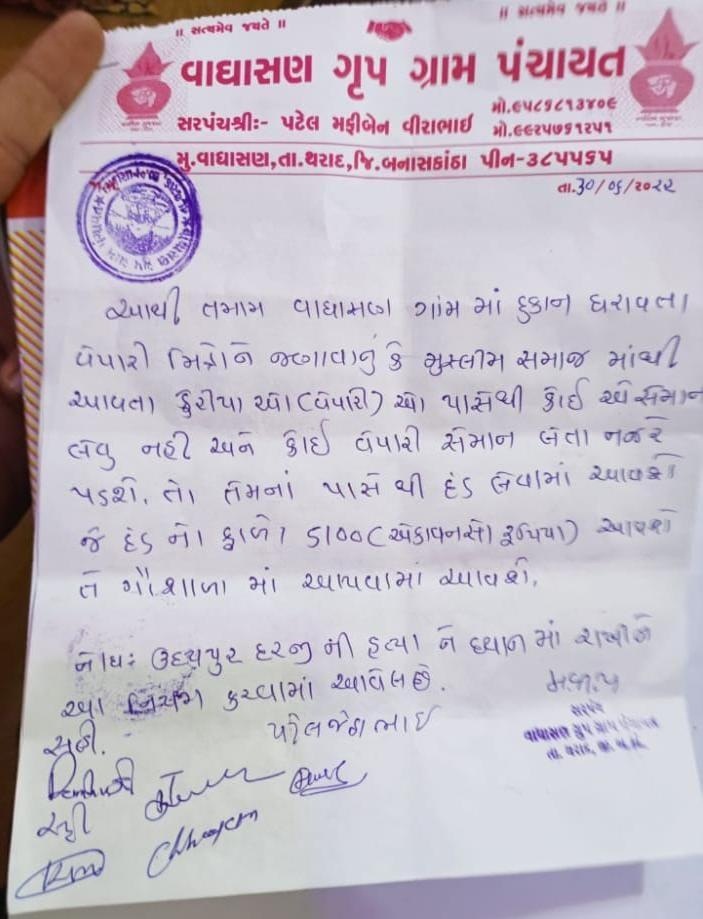 ॥ સત્યમેવ જયતે ॥
॥ સત્યમેવ જયતે ॥
વાઘાસણ ગૃપ ગ્રામ પંચાયત
સરપંચશ્રી:- પટેલ મફીબેન વીરાભાઈ
મો.૯૫૮૬૮૧૩૪૦૯
મો.૯૯૨૫૭૬૧૨૫૧
મુ.વાઘાસણ,તા.થરાદ,જિ.બનાસકાંઠા પીન-૩૮૫૫૬૫
તા.30/06/૨૦૨૨
આથી તમામ વાઘાસણ ગામ માં દુકાન ધરાવતા
વેપારી મિત્રોને જણાવાનું કે મુસ્લીમ સમાજ માંથી
આવતા ફેરીયા ઓ(વેપારી) ઓ પાસેથી કોઈ એ સમાન
લેવુ નહી અને કોઈ વેપારી સમાન લેતા નજરે
પડશે. તો તેમનાં પાસે થી દંડ લેવામાં આવશે
જે દંડ નો ફાળો 5100(એકાવનસો રૂપિયા) આવશે
તે ગૌશાળા માં આપવામાં આવશે.
નોંધ: ઉદયપુર દરજી ની હત્યા ને ધ્યાન માં રાખીને
આ નિયમ કરવામાં આવેલ છે.
સહી.
સરપંચ
વાઘાસણ ગૃપ ગ્રામ પંચાયત
સહી